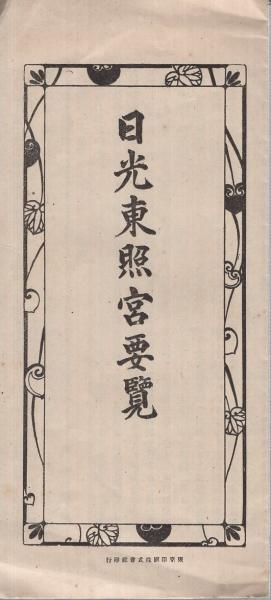 日光東照宮要覽
東京印刷株式會社印行